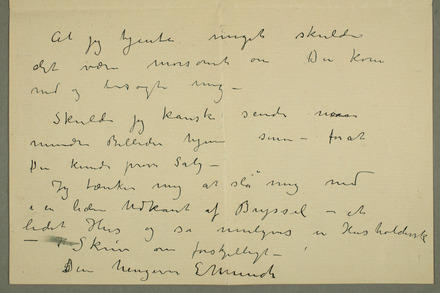 At jeg tjente noget skulde
det være morsomt om Du kom
ned og besøgte mig —
Skulde jeg kanske sende
mindre Billeder hjem – forat
Du kunde prøve Salg —
Jeg tænker mig at slå mig ned
i en liden Udkant af Bryssel – et
lidet Hus og så muligvis en Husholderske
– Skriv om forskjelligt –
Din hengivne E Munch